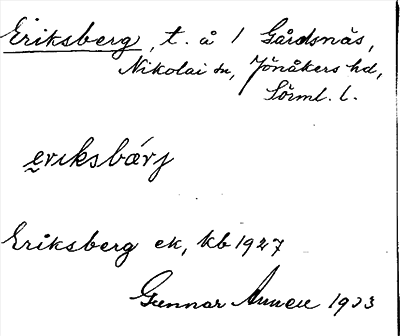 Eriksberg, t. å / Gårdsnäs,
Nikolai sn, Jönåkers hd,
Sörml. l.
eriksbærj
Eriksberg ek, kb 1927
Gunnar 1933